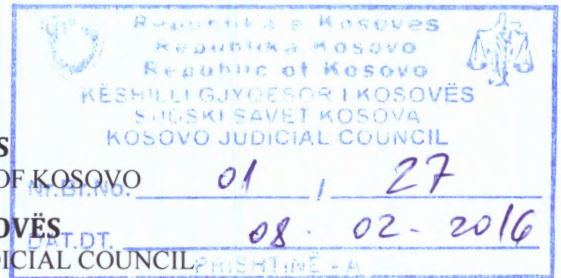 Republika e Kosovës
Republika Kosovo
Republic of Kosovo
KËSHILLI GJYQËSOR I KOSOVËS
SUDSKI SAVET KOSOVA
KOSOVO JUDICIAL COUNCIL
S
OF KOSOVO
Nr.Br.No. 01 / 27
OVËS
DAT.DT. 08. 02 - 2016
DICIAL COUNCIL
PRISHTINË - A